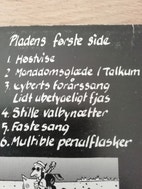 Pladens første side
1. Høstvise
2. Monadomsglæde / Talkum
3. Cyberts forårssang
Lidt ubetydeligt fjas
4. Stille valbynætter
5. Fastesang
6. Multible penalflasker